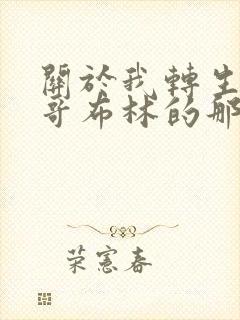 關於我轉生
哥布林的那
荣憲春